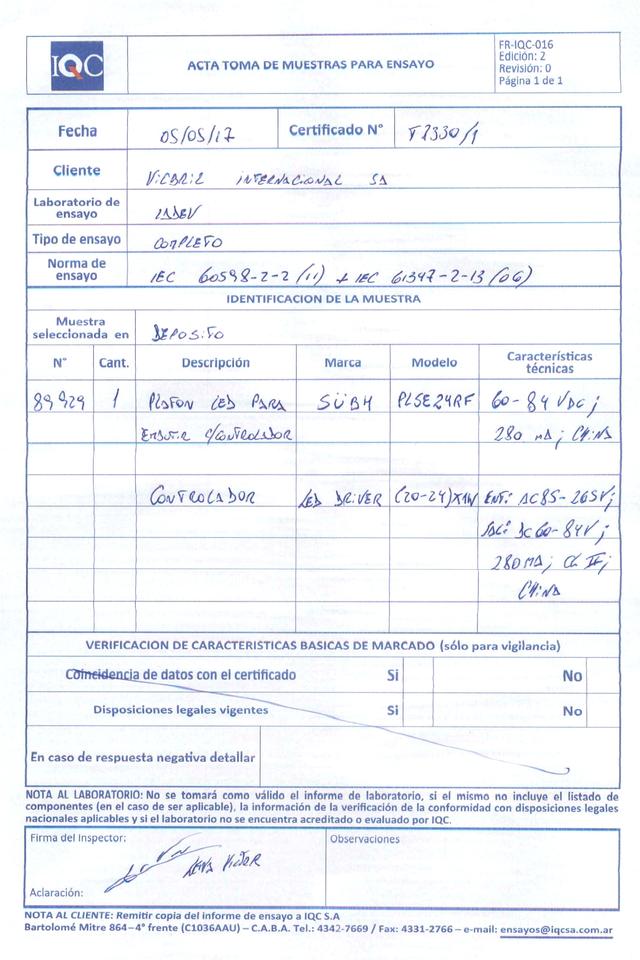 IQC
ACTA TOMA DE MUESTRAS PARA ENSAYO
FR-IQC-016
Edición: 2
Revisión: 0
Página 1 de 1
Fecha 05/05/17 Certificado N°
Cliente INTERNACIONAL SA
Laboratorio de
ensayo
Tipo de ensayo COMPLETO
Norma de
ensayo IEC 60598-2-2 (11) + IEC 61347-2-13 (06)
IDENTIFICACION DE LA MUESTRA
Muestra
seleccionada en DEPOSITO
N° Cant. Descripción Marca Modelo Características
técnicas
89929 1 PLAFON LED PARA PLSE24RF 60-84 VDC;
EMBUTIR C/CONTROLADOR 280 mA; CHINA
CONTROLADOR LED DRIVER (20-24)X1W ENT: AC85-265V;
SAL: DC60-84V;
280MA; CL II;
CHINA
VERIFICACION DE CARACTERISTICAS BASICAS DE MARCADO (sólo para vigilancia)
Coincidencia de datos con el certificado Si No
Disposiciones legales vigentes Si No
En caso de respuesta negativa detallar
NOTA AL LABORATORIO: No se tomará como válido el informe de laboratorio, si el mismo no incluye el listado de
componentes (en el caso de ser aplicable), la información de la verificación de la conformidad con disposiciones legales
nacionales aplicables y si el laboratorio no se encuentra acreditado o evaluado por IQC.
Firma del Inspector: Observaciones
VICTOR
Aclaración:
NOTA AL CLIENTE: Remitir copia del informe de ensayo a IQC S.A
Bartolomé Mitre 864–4° frente (C1036AAU) – C.A.B.A. Tel.: 4342-7669 / Fax: 4331-2766 – e-mail: ensayos@iqcsa.com.ar